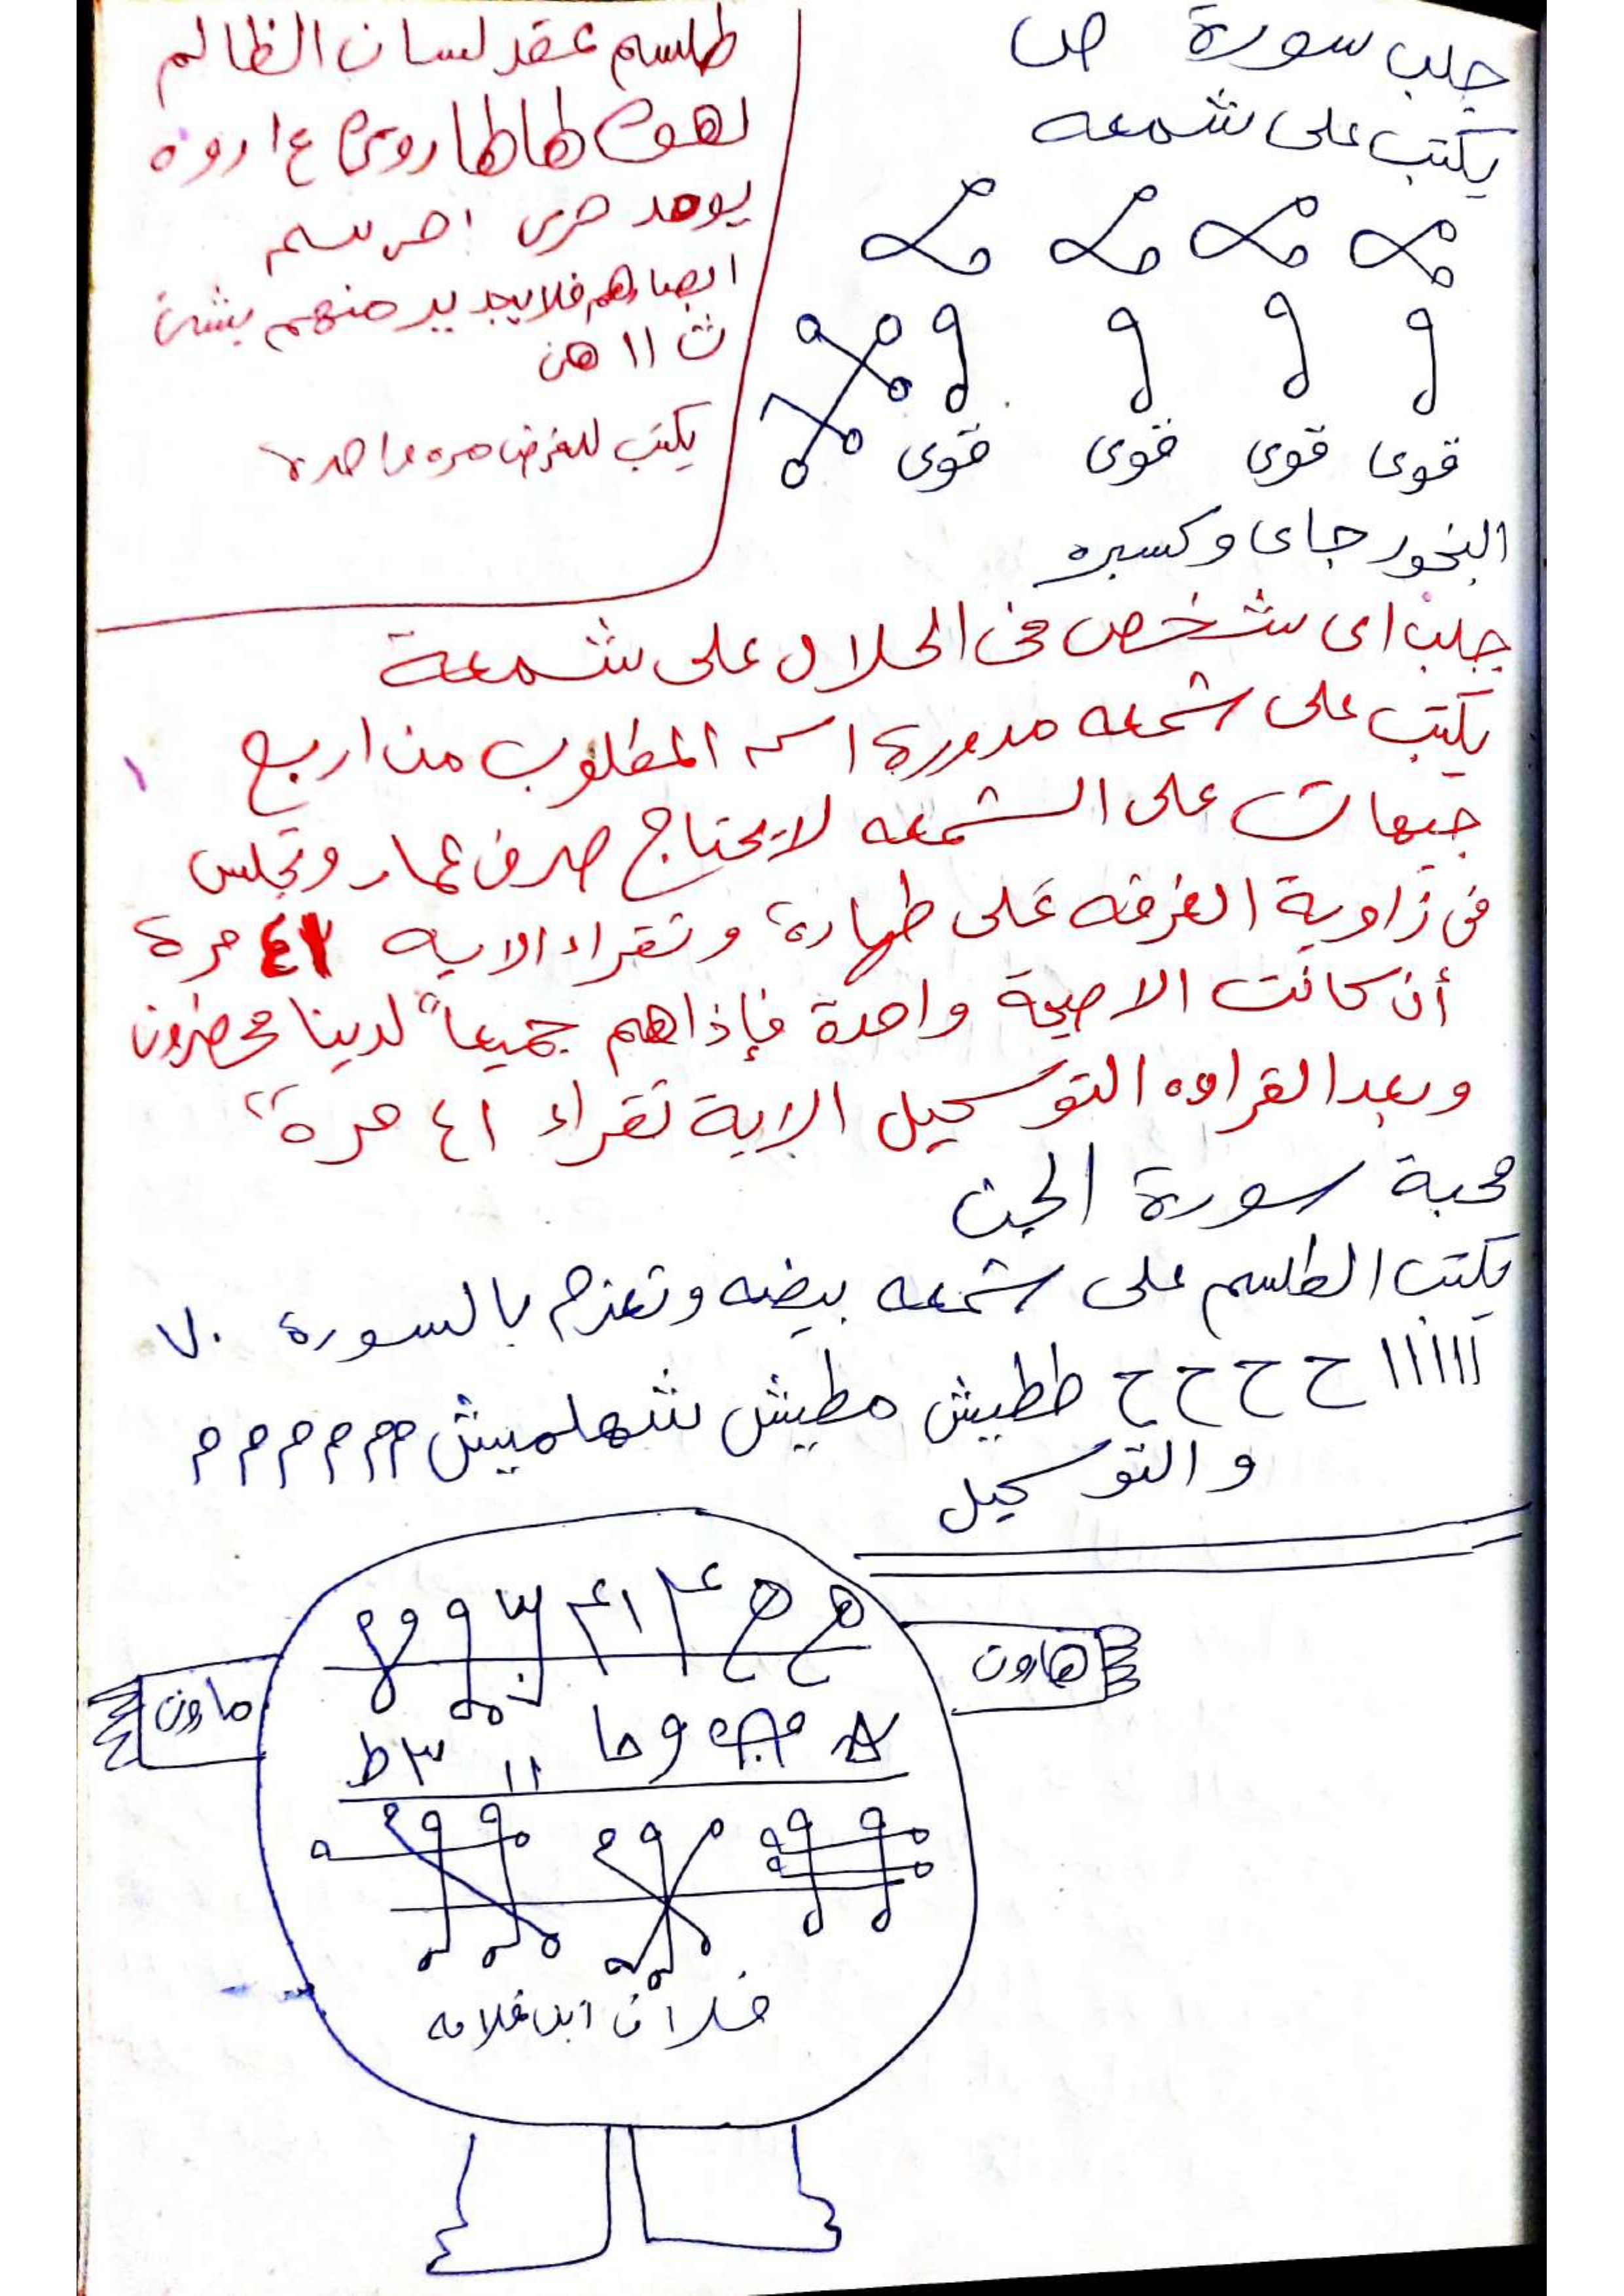 جلب سورة ص
يكتب على شمعه
قوى قوى قوى قوى
البخور جاى وكسبره
طلسم عقد لسان الظالم
لهوم طاطا
يوهد
ابصارهم فلا يجد يد منهم بشئ
ث ١١ هن
يكتب للغرض مره واحده
جلب اى شخص فى الحلال على شمعة
يكتب على شمعه مدورة اسم المطلوب من اربع
جيهات على الشمعه لا يحتاج صرف عمار وتجلس
فى زاوية الغرفه على طهارة وتقراء الايه ٤١ مرة
أن كانت الا صيحة واحدة فإذاهم جميعاً لدينا محضرون
وبعد القراءه التوسكيل الاية تقراء ٤١ مرة
محبة سورة الجن
يكتب الطلسم على شمعه بيضه وتعزم بالسورة ٧٠
١١١١١١ ح ح ح ح ططيش مطيش شهلميش م م م م م م م
و التوسكيل
هاون
ماون
فلان ابن فلانه